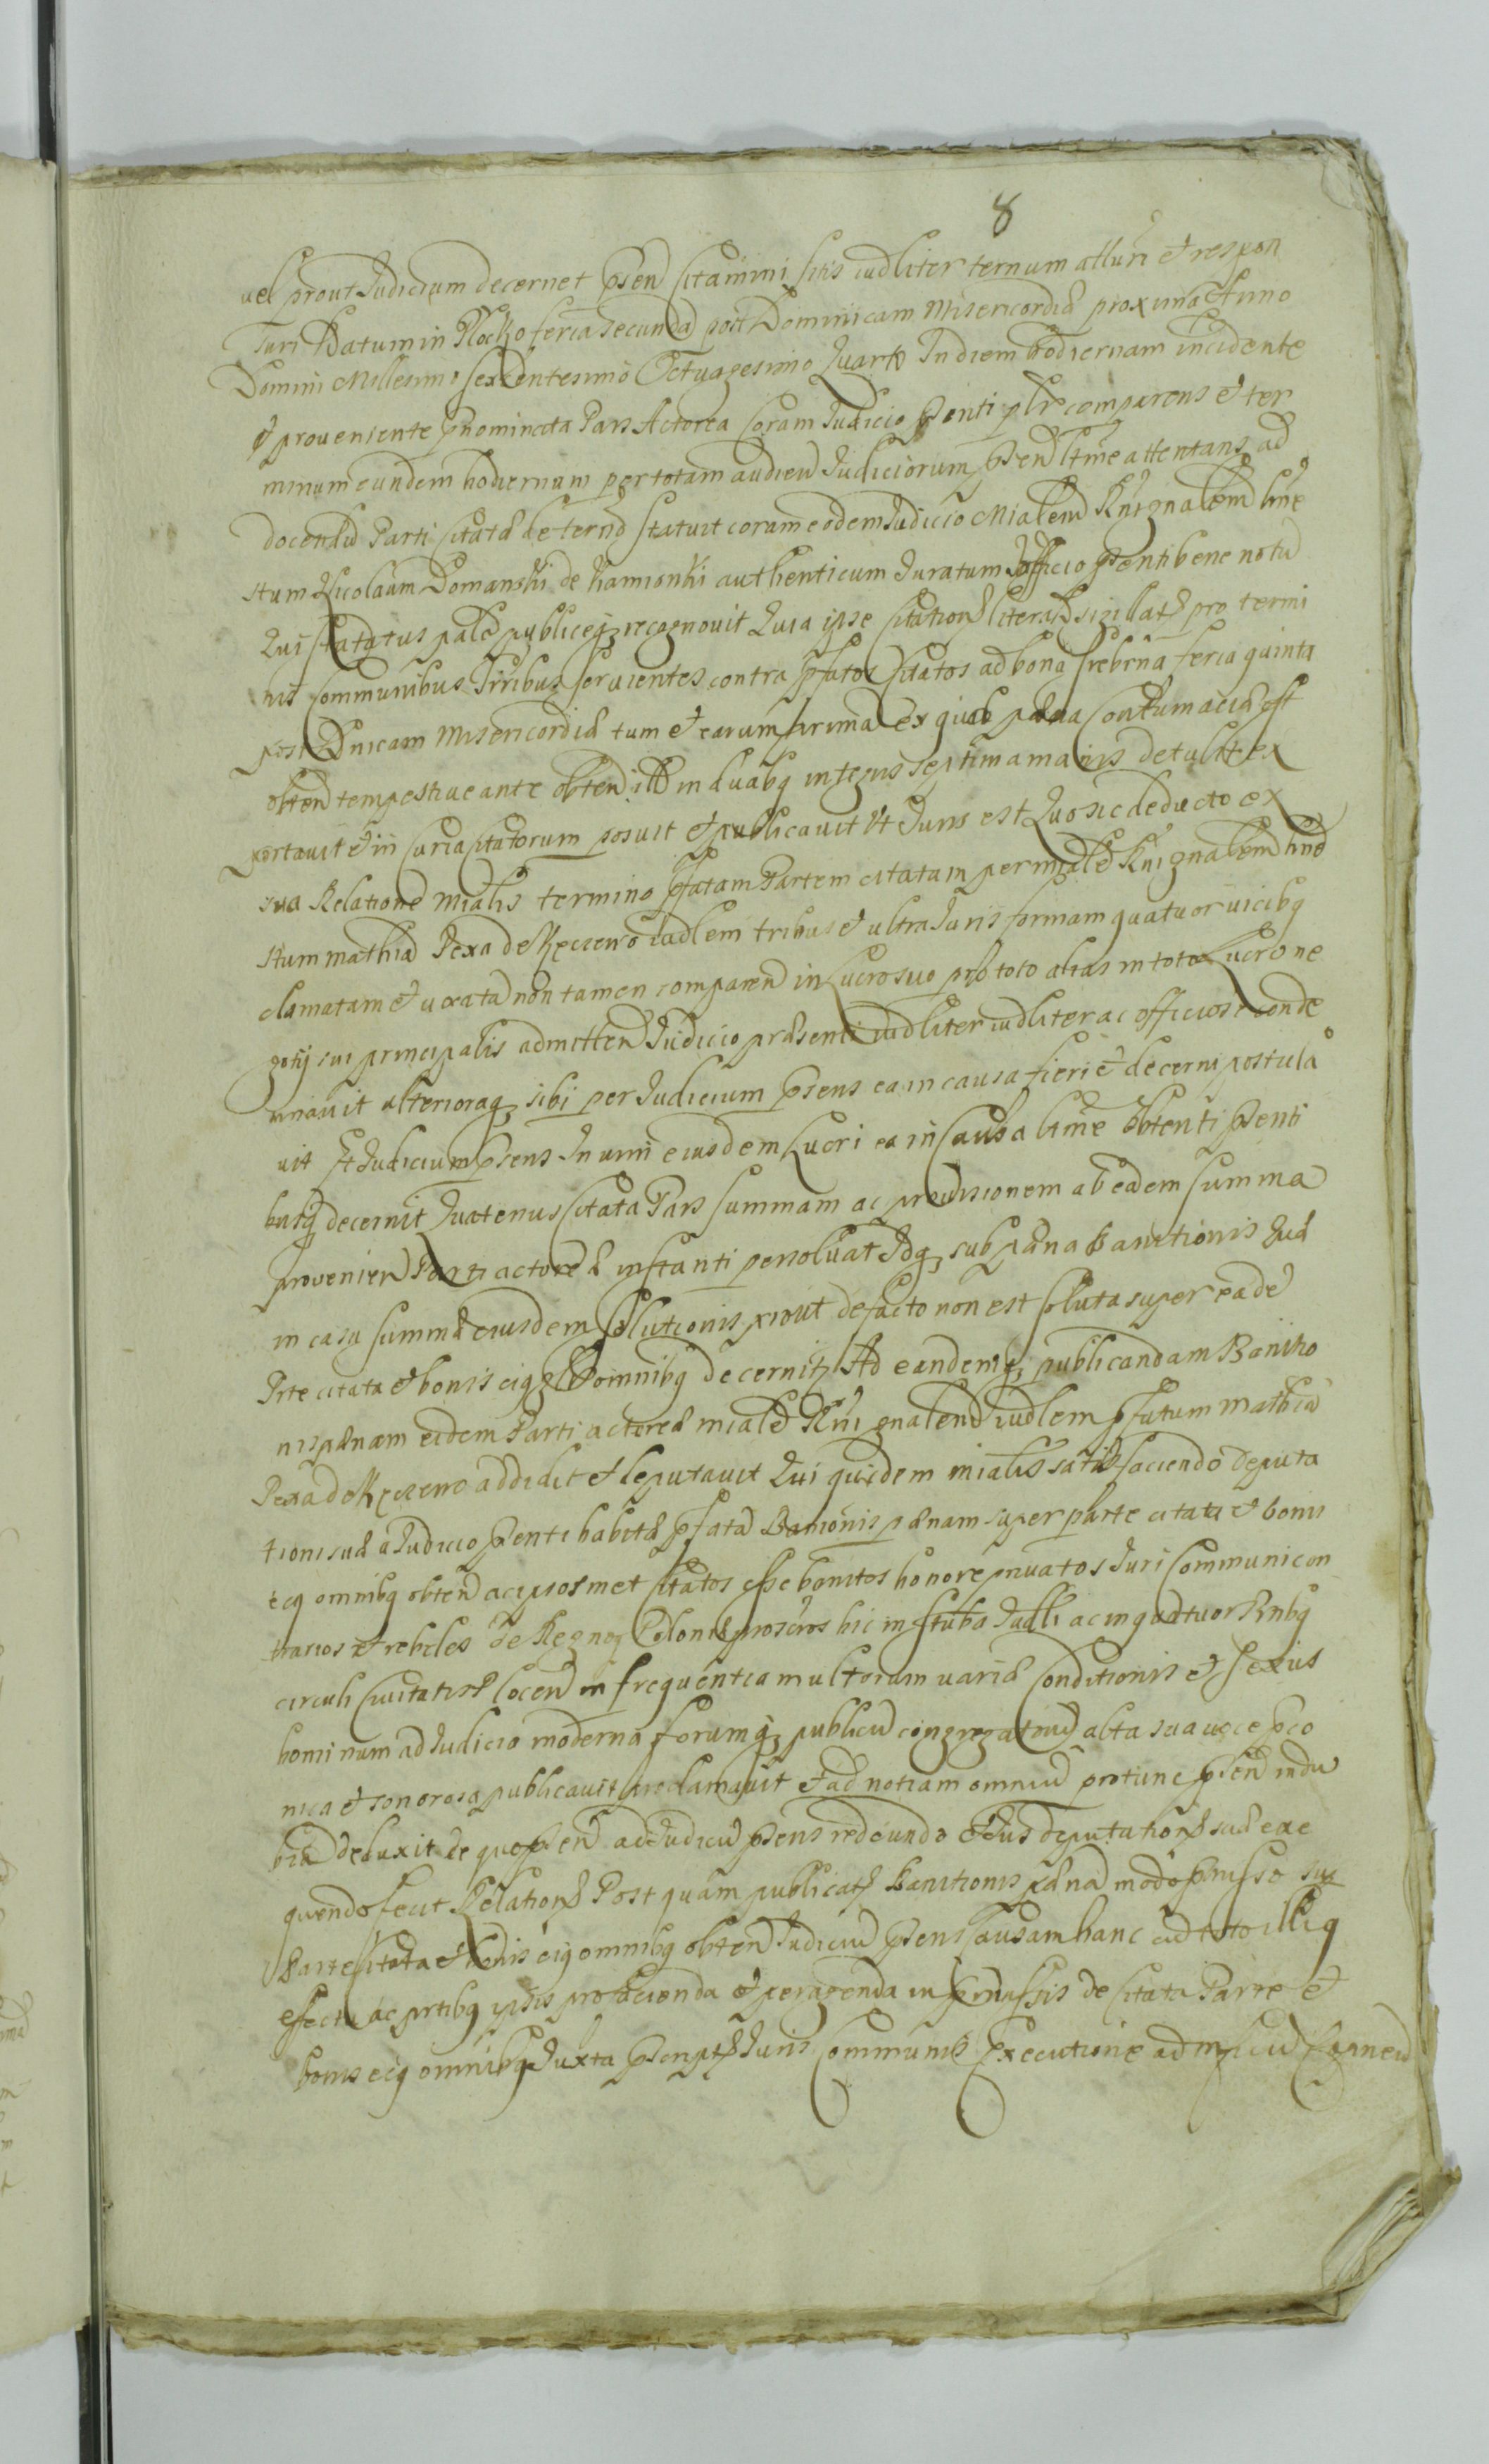 8
vel prout Judicium decernet Psen Citamini sitis iudliter ternum attturi et respon
suri Datum in Plocko feria secunda post Dominicam Misericordiæ proxima Anno
Domini Millesimo sexcentesimo Octuagesimo Quarto In diem hodiernam incidente
et proveniente Pnominata Pars Actorea Coram Judicio Psenti plr comparens et ter
minum eundem hodiernum per totam audien Judiciorum Psen ltme attentans ad
docendu Parti Citatæ de termo statuit coram eodem Judicio Mialem Rni gnalem hne
stum Nicolaum Domanski de Kamionki authenticum Juratum Officio Psenti bene notu
Qui sta tus palæ publiceq recognovit Quia ipse Citationes literas sigillatas pro termi
nis Communibus Trribus servientes contra Pfatos Citatos ad bona Srebrna feria quinta
post Dnicam Misericordiæ tum et earum prima ex quib pæna Contumaciæ est
obten tempestive ante obten illi in duabq integris septimamanis detulit ex
portavit et in Curia Citatorum posuit et publicavit Ut Juris est Quo sic deducto ex
sua Relatione Mialis termino Pfatam Partem citatam per mialem Rni gnalem hne
stum Mathia Pexa de iudlem tribus et ultra Juris formam quatuor vicibq
clamatam et vocata non tamen comparen in Lucro suo pro toto alias in toto Lucro ne
gotij sui principalis admitten Judicio præsenti iudliter iudliter ac officiose conde
mnavit ulterioraq sibi per Judicium Psens ea in causa fieri et decerni postula
vit Et Judicium Psens In vim eiusdem Lucri ea in Causa ltme obtenti Psenti
busq decernit Quatenus Citata Pars Summam ac provisionem ab eadem Summa
provenien Parti actoreæ instanti persolvat Idq sub pæna Banitionis Quæ
in casu Summæ eiusdem solutionis prout de facto non est soluta super eade
Prte citata et bonis eiq omnibq decernitr Ad eandemq publicandam Banitio
nis pænam eidem Parti actoreæ miale Rni gnalem iudlem Pfatum Mathia
Pexa de addidit et deputavit Qui quidem mialis satis faciendo deputa
tioni suæ a Judicio Psenti habitæ Pfata Banionis pænam super parte citata et bonis
eiq omnibq obten ac ipsosmet Citatos esse banitos honore privatos Juri Communi con
trarios et rebelles de Regnoq Poloniæ proscros hic in stuba Judli ac in quatuor Rnbq
circuli Civitatis locen in frequentia multorum variæ Conditionis et sexus
hominum ad Judicia moderna forumq publicu congregatoru alta sua voce Pco
nica et sonorosa publicavit proclamavit et ad notiam omniu protunc Psen indu
bia deduxit de quo Psen ad Judiciu Psens redeundo Actus deputationis suæ exe
quendo fecit Relationem Post quam publicatæ Banitionis pæna modo Pmisso sup
Parte Citata et bonis eiq omnibq obten Judiciu Psens Causam hanc cu toto illiq
effectu ac prtibq ipsis pro facienda et peragenda in Pmissis de Citata Parte et
bonis eiq omnibq Juxta Pscripta Juris Communis Executione ad